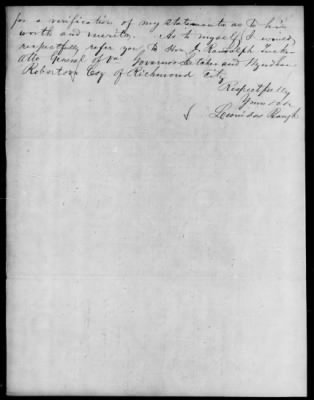 for a verification of my statements as to his
worth and merits. As to myself I would
respectfully refer you to Hon J. Randolph Tucker
Atto General of Va Governor Letcher and Wyndham
Robertson Esq of Richmond City.
Respectfully
Yours &c
Leonidas Baugh